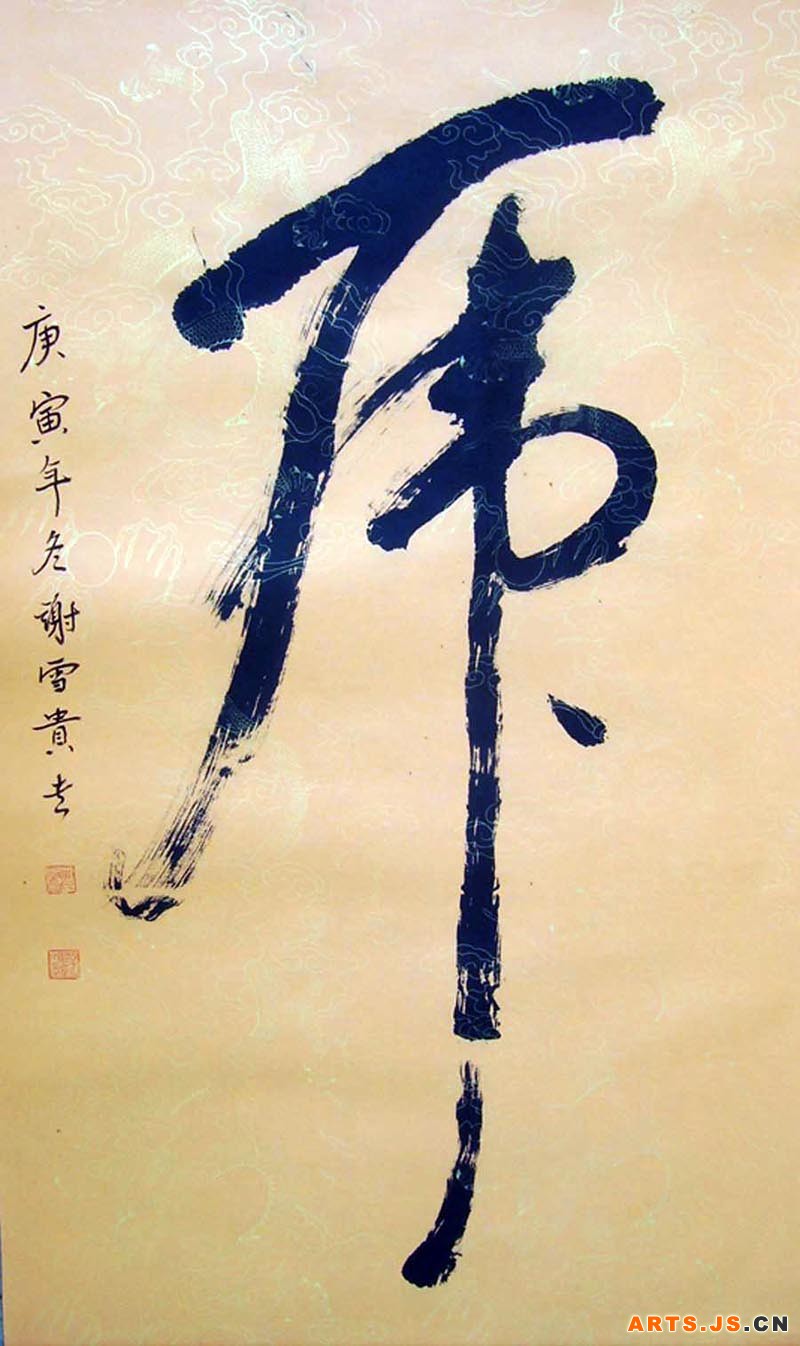 虎
庚寅年冬谢雪貴书
ARTS.JS.CN